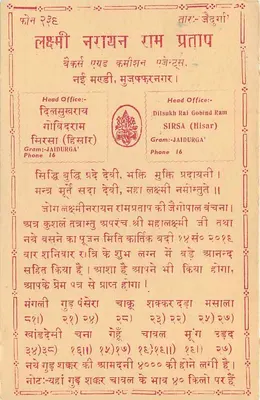 फोन २३९
तार:- जैदुर्गा
लक्ष्मी नरायन राम प्रताप
बैंकर्स एण्ड कमीशन एजेन्ट्स.
नई मण्डी, मुजफ्फरनगर।
Head Office:-
दिलसुखराय
गोबिंदराम
सिरसा (हिसार)
Gram:-JAIDURGA'
Phone 16
Head Office:-
Dilsukh Rai Gobind Ram
SIRSA (Hisar)
Gram:-JAIDURGA'
Phone 16
सिद्धि बुद्धि प्रदे देवी, भक्ति मुक्ति प्रदायनी।
मन्त्र मूर्ते सदा देवी, महा लक्ष्मी नमोस्तुते ॥
जोग लक्ष्मीनरायन रामप्रताप की जैगोपाल बंचना।
अत्र कुशलं तत्रास्तु अपरंच श्री महालक्ष्मी जी तथा
नये बसने का पूजन मिति कार्तिक बदी १४ सं० २०१६
वार शनिवार रात्रि के शुभ लग्न में बड़े आनन्द
सहित किया है। आशा है आपने भी किया होगा,
आपके प्रेम पत्र से प्राप्त होगा।
मंगली गुड़ पंसेरा चाकू शक्कर दड़ा मसाला
८१) २१) २४) २८) २३) २२) २५) २७)
खांडदेसी चना गेहूँ चावल मूंग उड़द
नये गुड़ शक्कर की आमदनी ४००० की होने लगी है।
नोट:-यहाँ गुड़ शक्कर चावल के भाव ४० किलो पर हैं